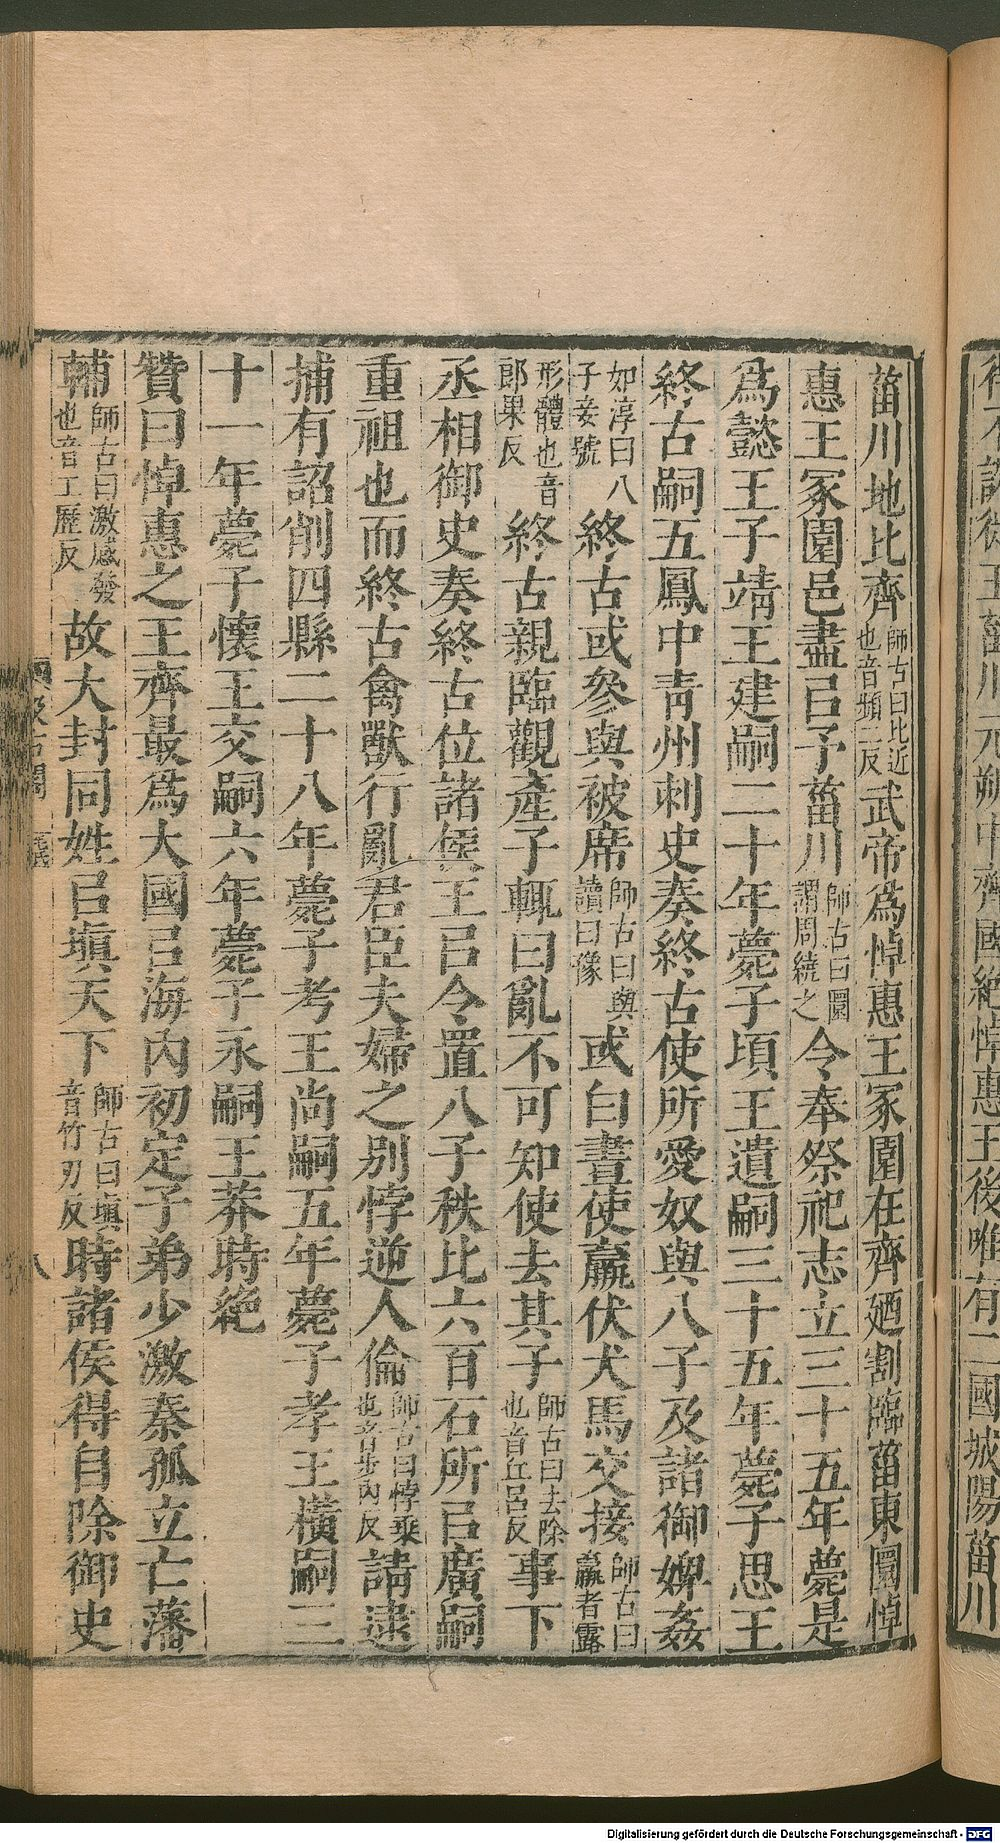 菑川地比齊師古曰比近也音頻二反武帝爲悼惠王冢園在齊廼割臨菑東圜悼
惠王冢園邑盡㠯予菑川師古曰圜謂周繞之令奉祭祀志立三十五年薨是
爲懿王子靖王建嗣二十年薨子頃王遺嗣三十五年薨子思王
終古嗣五鳳中青州刺史奏終古使所愛奴與八子及諸御婢姦
如淳曰八子妾號終古或參與被席師古曰與讀曰豫或白晝使臝伏犬馬交接師古曰臝者露
形體也音郎果反終古親臨觀產子輒曰亂不可知使去其子師古曰去除也音丘呂反事下
丞相御史奏終古位諸侯王㠯令置八子秩比六百石所㠯廣嗣
重祖也而終古禽獸行亂君臣夫婦之別悖逆人倫師古曰悖乘也音步內反請逮
捕有詔削四縣二十八年薨子考王尚嗣五年薨子孝王橫嗣三
十一年薨子懷王交嗣六年薨子永嗣王莽時絕
贊曰悼惠之王齊最爲大國㠯海內初定子弟少激秦孤立亡藩
輔師古曰激感發也音工歷反故大封同姓㠯塡天下師古曰塡音竹刃反時諸侯得自除御史
八
Digitalisierung gefördert durch die Deutsche Forschungsgemeinschaft - DFG